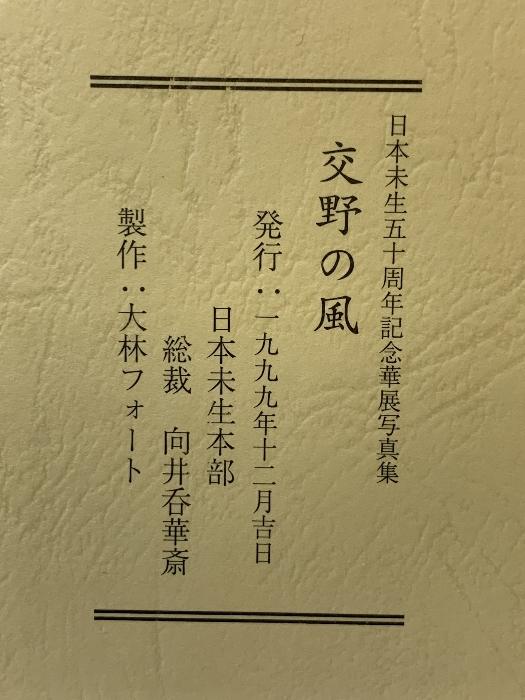 日本未生五十周年記念華展写真集
交野の風
発行：一九九九年十二月吉日
日本未生本部
総裁　向井呑華斎
製作：大林フォート